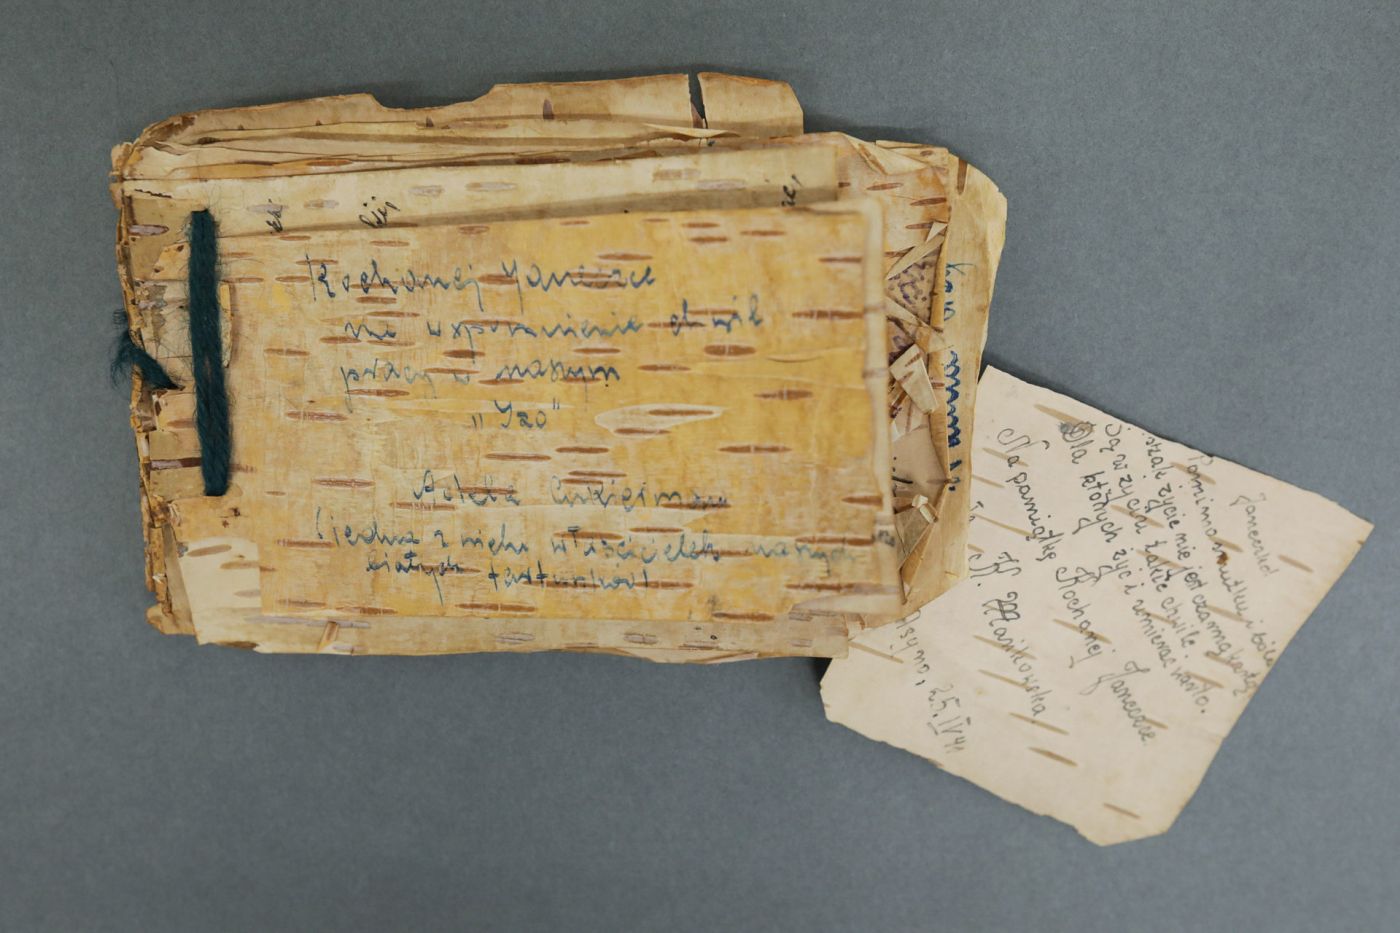 Kochanej Janeczce
na wspomnienie chwil
pracy w naszym
"Izo"
Adela Cukierman
(jedna z wielu właścicielek naszych
białych fartuchów)
Janeczko!
Pomimo smutku i bólu
życie nie jest czarną kartą
Są w życiu takie chwile
Dla których żyć i umierać warto.
Na pamiątkę Kochanej Janeczce.
K. Mańkowska
Asyno, 25.IV 41